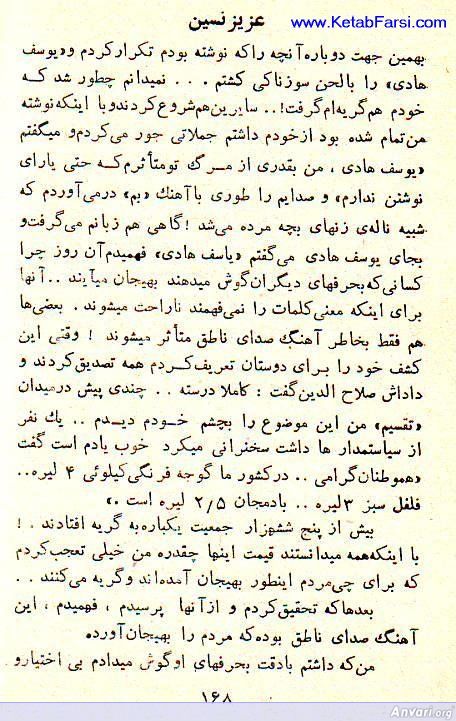 www.KetabFarsi.com
عزیز نسین
بهمین جهت دوباره آنچه راکه نوشته بودم تکرارکردم و «یوسف
هادی» را بالحن سوزناکی کشتم . . . نمیدانم چطور شد کـه
خودم هم گریه‌ام گرفت!.. سایرین هم شروع کردندو با اینکه نوشته
من تمام شده بود از خودم داشتم جملاتی جور می‌کردم و میگفتم
«یوسف هادی ، من بقدری از مـرگ تومتأثرم‌کـه حتی یارای
نوشتن ندارم» و صدایم را طوری باآهنك «بم» درمی‌آوردم که
شبیه ناله‌ی زنهای بچه مرده می‌شد ! گاهی هم زبانم می‌گرفت و
بجای یوسف هادی می‌گفتم «یاسف هادی» فهمیدم آن روز چرا
کسانی‌که بحرفهای دیگران گوش میدهند بهیجان میآیند .. آنها
برای اینکه معنی کلمات را نمی‌فهمند ناراحت میشوند . بعضی‌ها
هم فقط بخاطر آهنگ صدای ناطق متأثر میشوند ! وقتی این
کشف خود را بـرای دوستان تعریف‌کـردم همه تصدیق‌کردند و
داداش صلاح الدین‌گفت : کاملا درسته .. چندی پیش درمیدان
«تقسیم» من این موضوع را بچشم خـودم دیـدم .. یك نفر
از سیاستمدار ها داشت سخنرانی میکرد خوب یادم است گفت
«هموطنان‌گرامی .. درکشور ما گوجه فرنگی‌کیلوئی ۴ لیره..
فلفل سبز ۳ لیره .. بادمجان ۲/۵ لیره است .»
بیش از پنج ششهزار جمعیت یکباره به گریه افتادند . !
با اینکه همه میدانستند قیمت اینها چقدره من خیلی تعجب‌کردم
که برای چی مردم اینطور بهیجان آمده‌اند و گریه می‌کنند . .
بعدها که تحقیق‌کردم و ازآنها پرسیدم ، فهمیدم ، این
آهنگ صدای ناطق بوده‌که مردم را بهیجان‌آورده
من‌که داشتم بادقت بحرفهای او گوش میدادم بی اختیارو
۱۶۸
Anvari.org